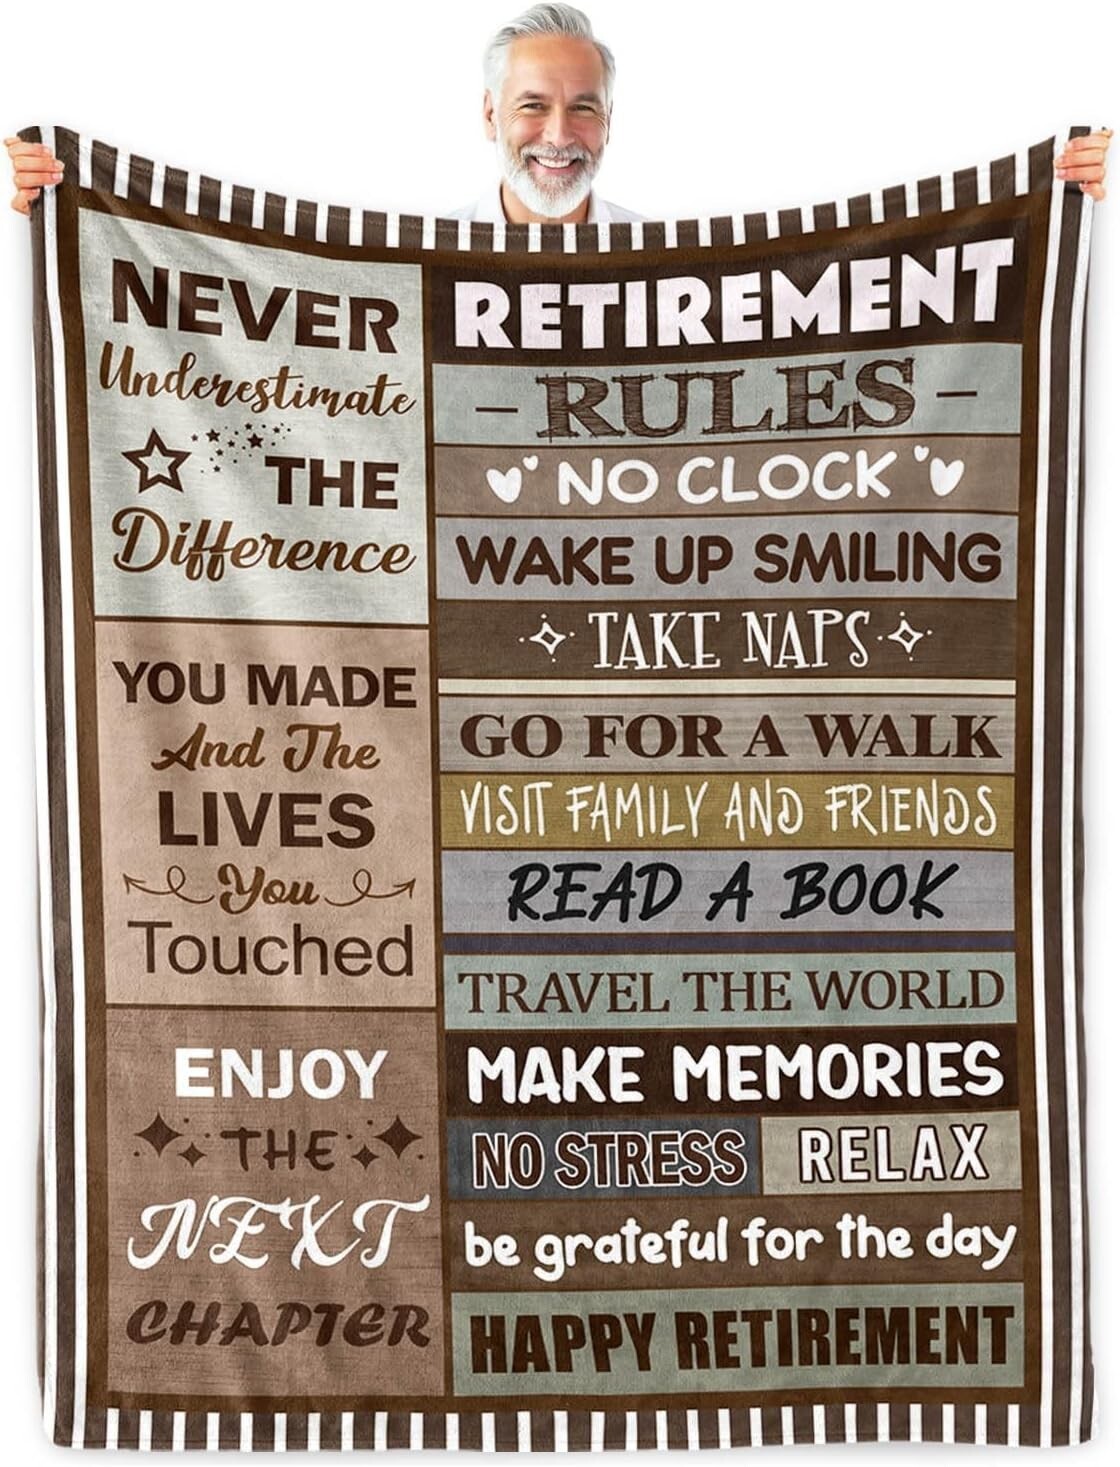 NEVER
Underestimate
THE
Difference
YOU MADE
And The
LIVES
You
Touched
ENJOY
THE
NEXT
CHAPTER
RETIREMENT
- RULES -
NO CLOCK
WAKE UP SMILING
TAKE NAPS
GO FOR A WALK
VISIT FAMILY AND FRIENDS
READ A BOOK
TRAVEL THE WORLD
MAKE MEMORIES
NO STRESS RELAX
be grateful for the day
HAPPY RETIREMENT